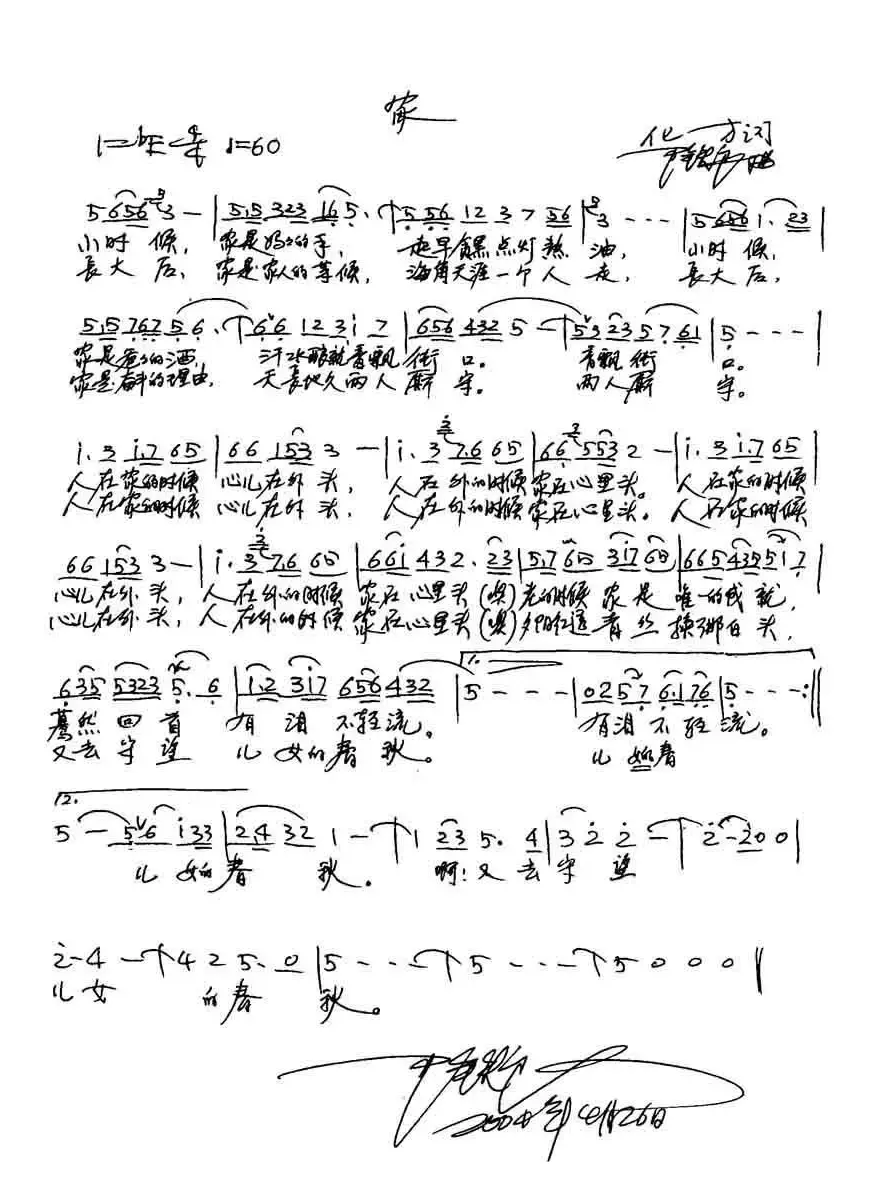 家
1=♭E 4/4 ♩=60
词 曲
5 656 3 - | 5.5 323 16 5. | 5 56 12 3 7 56 | 3 - - - | 5 656 1. 23 |
小时候， 家是妈妈的手， 起早贪黑点灯熬油， 小时候，
長大后， 家是家人的等候， 海角天涯一个人走， 長大后，
5.5 767 5 6. | 66 12 31 7 | 656 432 5 - | 5 3 23 5 7 61 | 5 - - - |
家是爸爸的酒， 汗水酿就香飘街口。 香飘街口。
家是奋斗的理由， 天長地久两人厮守。 两人厮守。
1. 3 1.7 65 | 66 153 3 - | 1. 3 7.6 65 | 66 553 2 - | 1. 3 1.7 65 |
人在家的时候 心儿在外头， 人在外的时候 家在心里头。 人在家的时候
人在家的时候 心儿在外头， 人在外的时候 家在心里头。 人在家的时候
66 153 3 - | 1. 3 7.6 65 | 661 432. 23 | 5.7 65 317 65 | 665 435 517 |
心儿在外头， 人在外的时候 家在心里头(噢)老的时候 家是唯一的成就，
心儿在外头， 人在外的时候 家在心里头(噢)夕阳红透 青丝换了白头，
635 5323 5. 6 | 1.2 317 656 432 | 1. 5 - - - | 0257 6.176 | 5 - - - :||
蓦然回首 有泪不轻流。 有泪不轻流。
又去守望 儿女的春秋。 儿女的春
2.
5 - 56 1 33 | 2.4 32 1 - | 1 23 5. 4 | 3 2 2 - | 2 - 2 0 0 |
儿女的春秋。 啊！又去守望
2 - 4 - | 4 2 5. 0 | 5 - - - | 5 - - - | 5 0 0 0 ||
儿女 的春 秋。
2004年4月26日